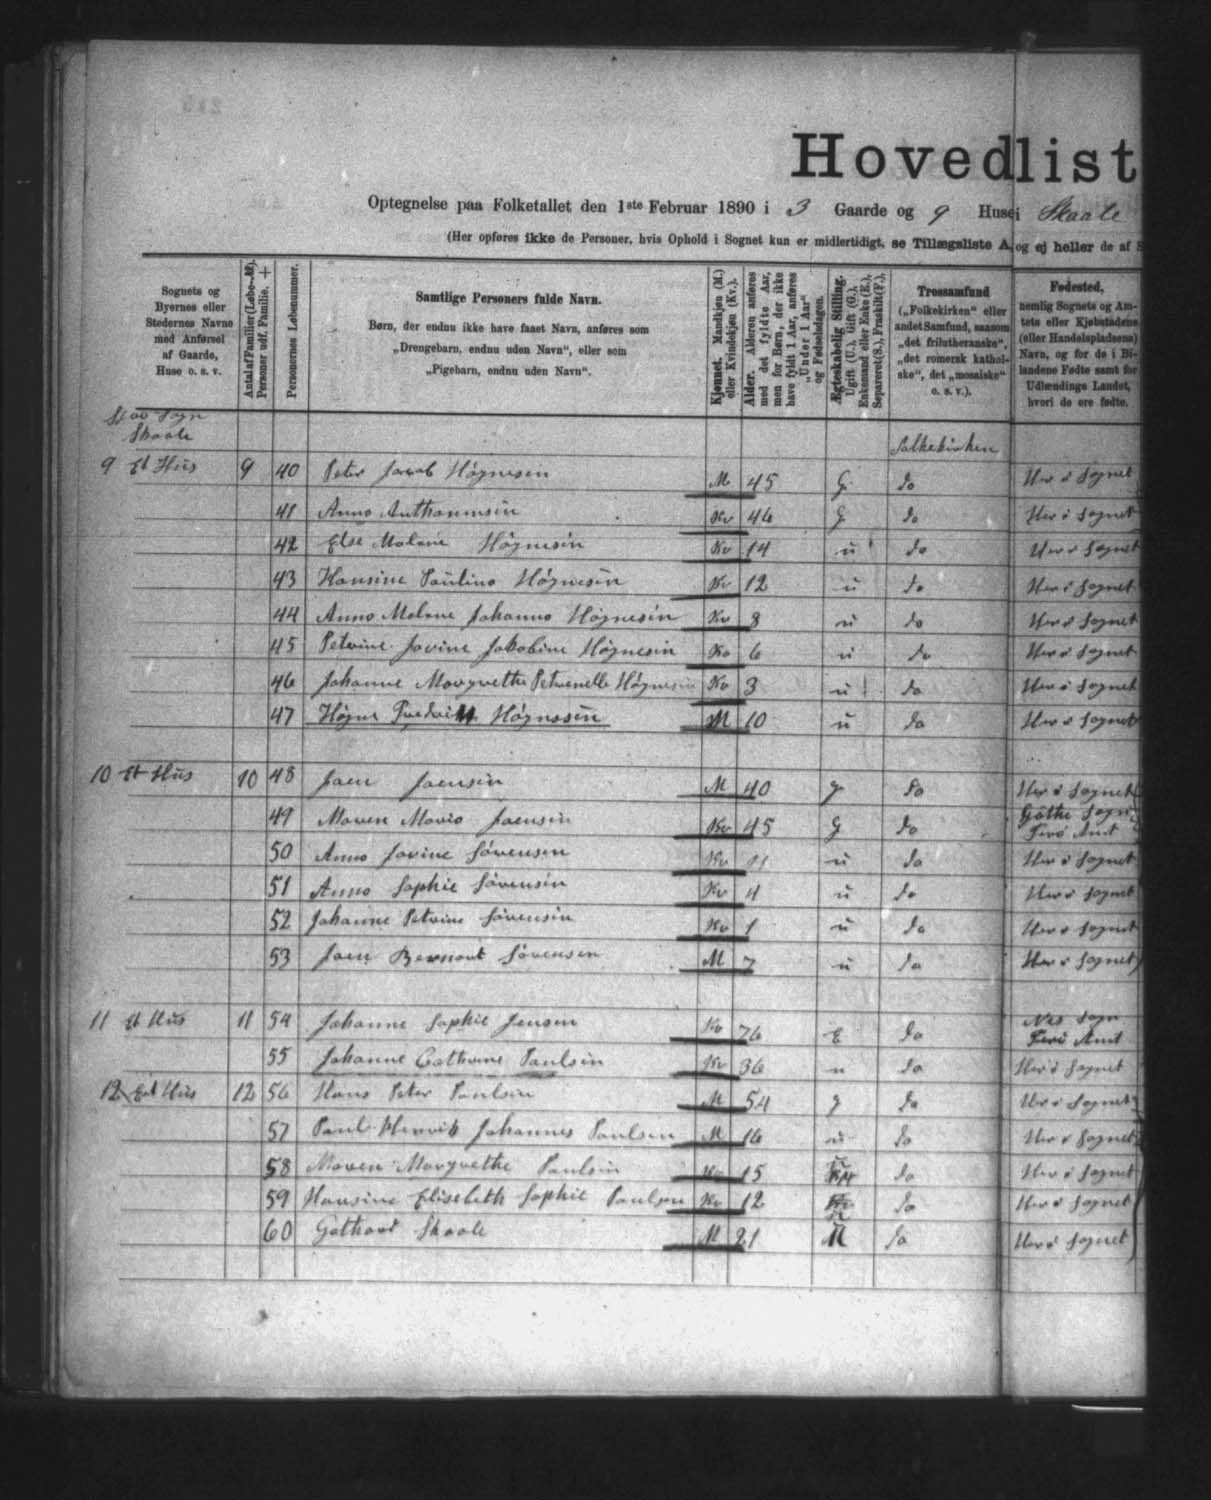 Hovedlist
Optegnelse paa Folketallet den 1ste Februar 1890 i 3 Gaarde og 9 Huse i Skaale
(Her opføres ikke de Personer, hvis Ophold i Sognet kun er midlertidigt, se Tillægsliste A, og ej heller de af S
Sognets og Byernes eller Stedernes Navne med Anførsel af Gaarde, Huse o. s. v.
Antal af Familier (Løbe-№). Personer udf. Familie. +
Personernes Løbenummer.
Samtlige Personers fulde Navn.
Børn, der endnu ikke have faaet Navn, anføres som
„Drengebarn, endnu uden Navn“, eller som
„Pigebarn, endnu uden Navn“.
Kjønnet. Mandkjøn (M.) eller Kvindekjøn (Kv.).
Alder. Alderen anføres med det fyldte Aar, men for Børn, der ikke have fyldt 1 Aar, anføres „Under 1 Aar“ og Fødselsdagen.
Ægteskabelig Stilling. Ugift (U.), Gift (G.), Enkemand eller Enke (E.), Separeret (S.), Fraskilt (F.).
Trossamfund („Folkekirken“ eller andet Samfund, saasom „det frilutheranske“, „det romersk katholske“, det „mosaiske“ o. s. v.).
Fødested, nemlig Sognets og Amtets eller Kjøbstadens (eller Handelspladsens) Navn, og for de i Bilandene Fødte samt for Udlændinge Landet, hvori de ere fødte.
Sogn
Skaale
Folkekirken
9 Et Hus 9 40 Peter Jacob Høgnesen M 45 G do Her i Sognet
41 Anna Kv 46 G do Her i Sognet
42 Else Malene Høgnesen Kv 14 u do Her i Sognet
43 Hansine Paulina Høgnesen Kv 12 u do Her i Sognet
44 Anna Malene Johanna Høgnesen Kv 8 u do Her i Sognet
45 Petrine Jovine Jakobine Høgnesen Kv 6 u do Her i Sognet
46 Johanne Margrethe Petrenelle Høgnesen Kv 3 u do Her i Sognet
47 Høgne Høgnesen M 10 u do Her i Sognet
10 Et Hus 10 48 Joen Joensen M 40 g do Her i Sognet
49 Maren Maria Joensen Kv 45 G do Gøthe Sogn Færø Amt
50 Anna Jovine Sørensen Kv 11 u do Her i Sognet
51 Anna Sophie Sørensen Kv 4 u do Her i Sognet
52 Johanne Petrine Sørensen Kv 1 u do Her i Sognet
53 Joen Sørensen M 7 u do Her i Sognet
11 Et Hus 11 54 Johanne Sophie Jensen Kv 76 E do Nes Sogn Færø Amt
55 Johanne Cathrine Paulsen Kv 36 u do Her i Sognet
12 Et Hus 12 56 Hans Peter Paulsen M 54 g do Her i Sognet
57 Paul Henrik Johannes Paulsen M 16 u do Her i Sognet
58 Maren Margrethe Paulsen Kv 15 u do Her i Sognet
59 Hansine Elisebeth Sophie Paulsen Kv 12 u do Her i Sognet
60 Skaale M 21 do Her i Sognet